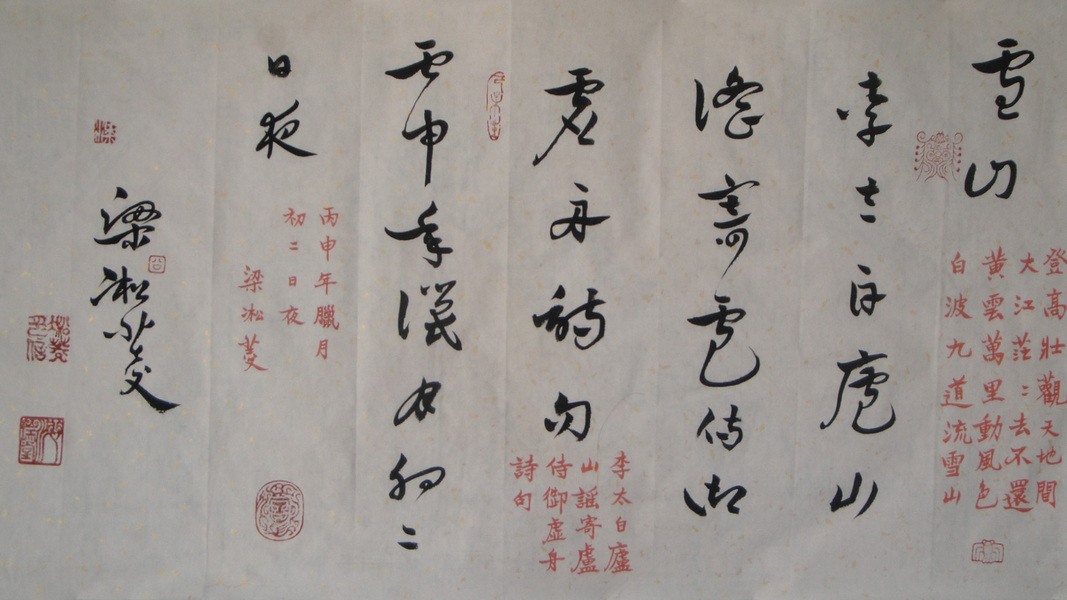 雪山
登高壯觀天地間
大江茫〻去不還
黃雲萬里動風色
白波九道流雪山
李太白廬山
謠寄盧侍御
虛舟詩句
李太白廬
山謠寄盧
侍御虛舟
詩句
丙申年臘月初二
日夜
丙申年臘月
初二日夜
梁凇菱
梁凇菱